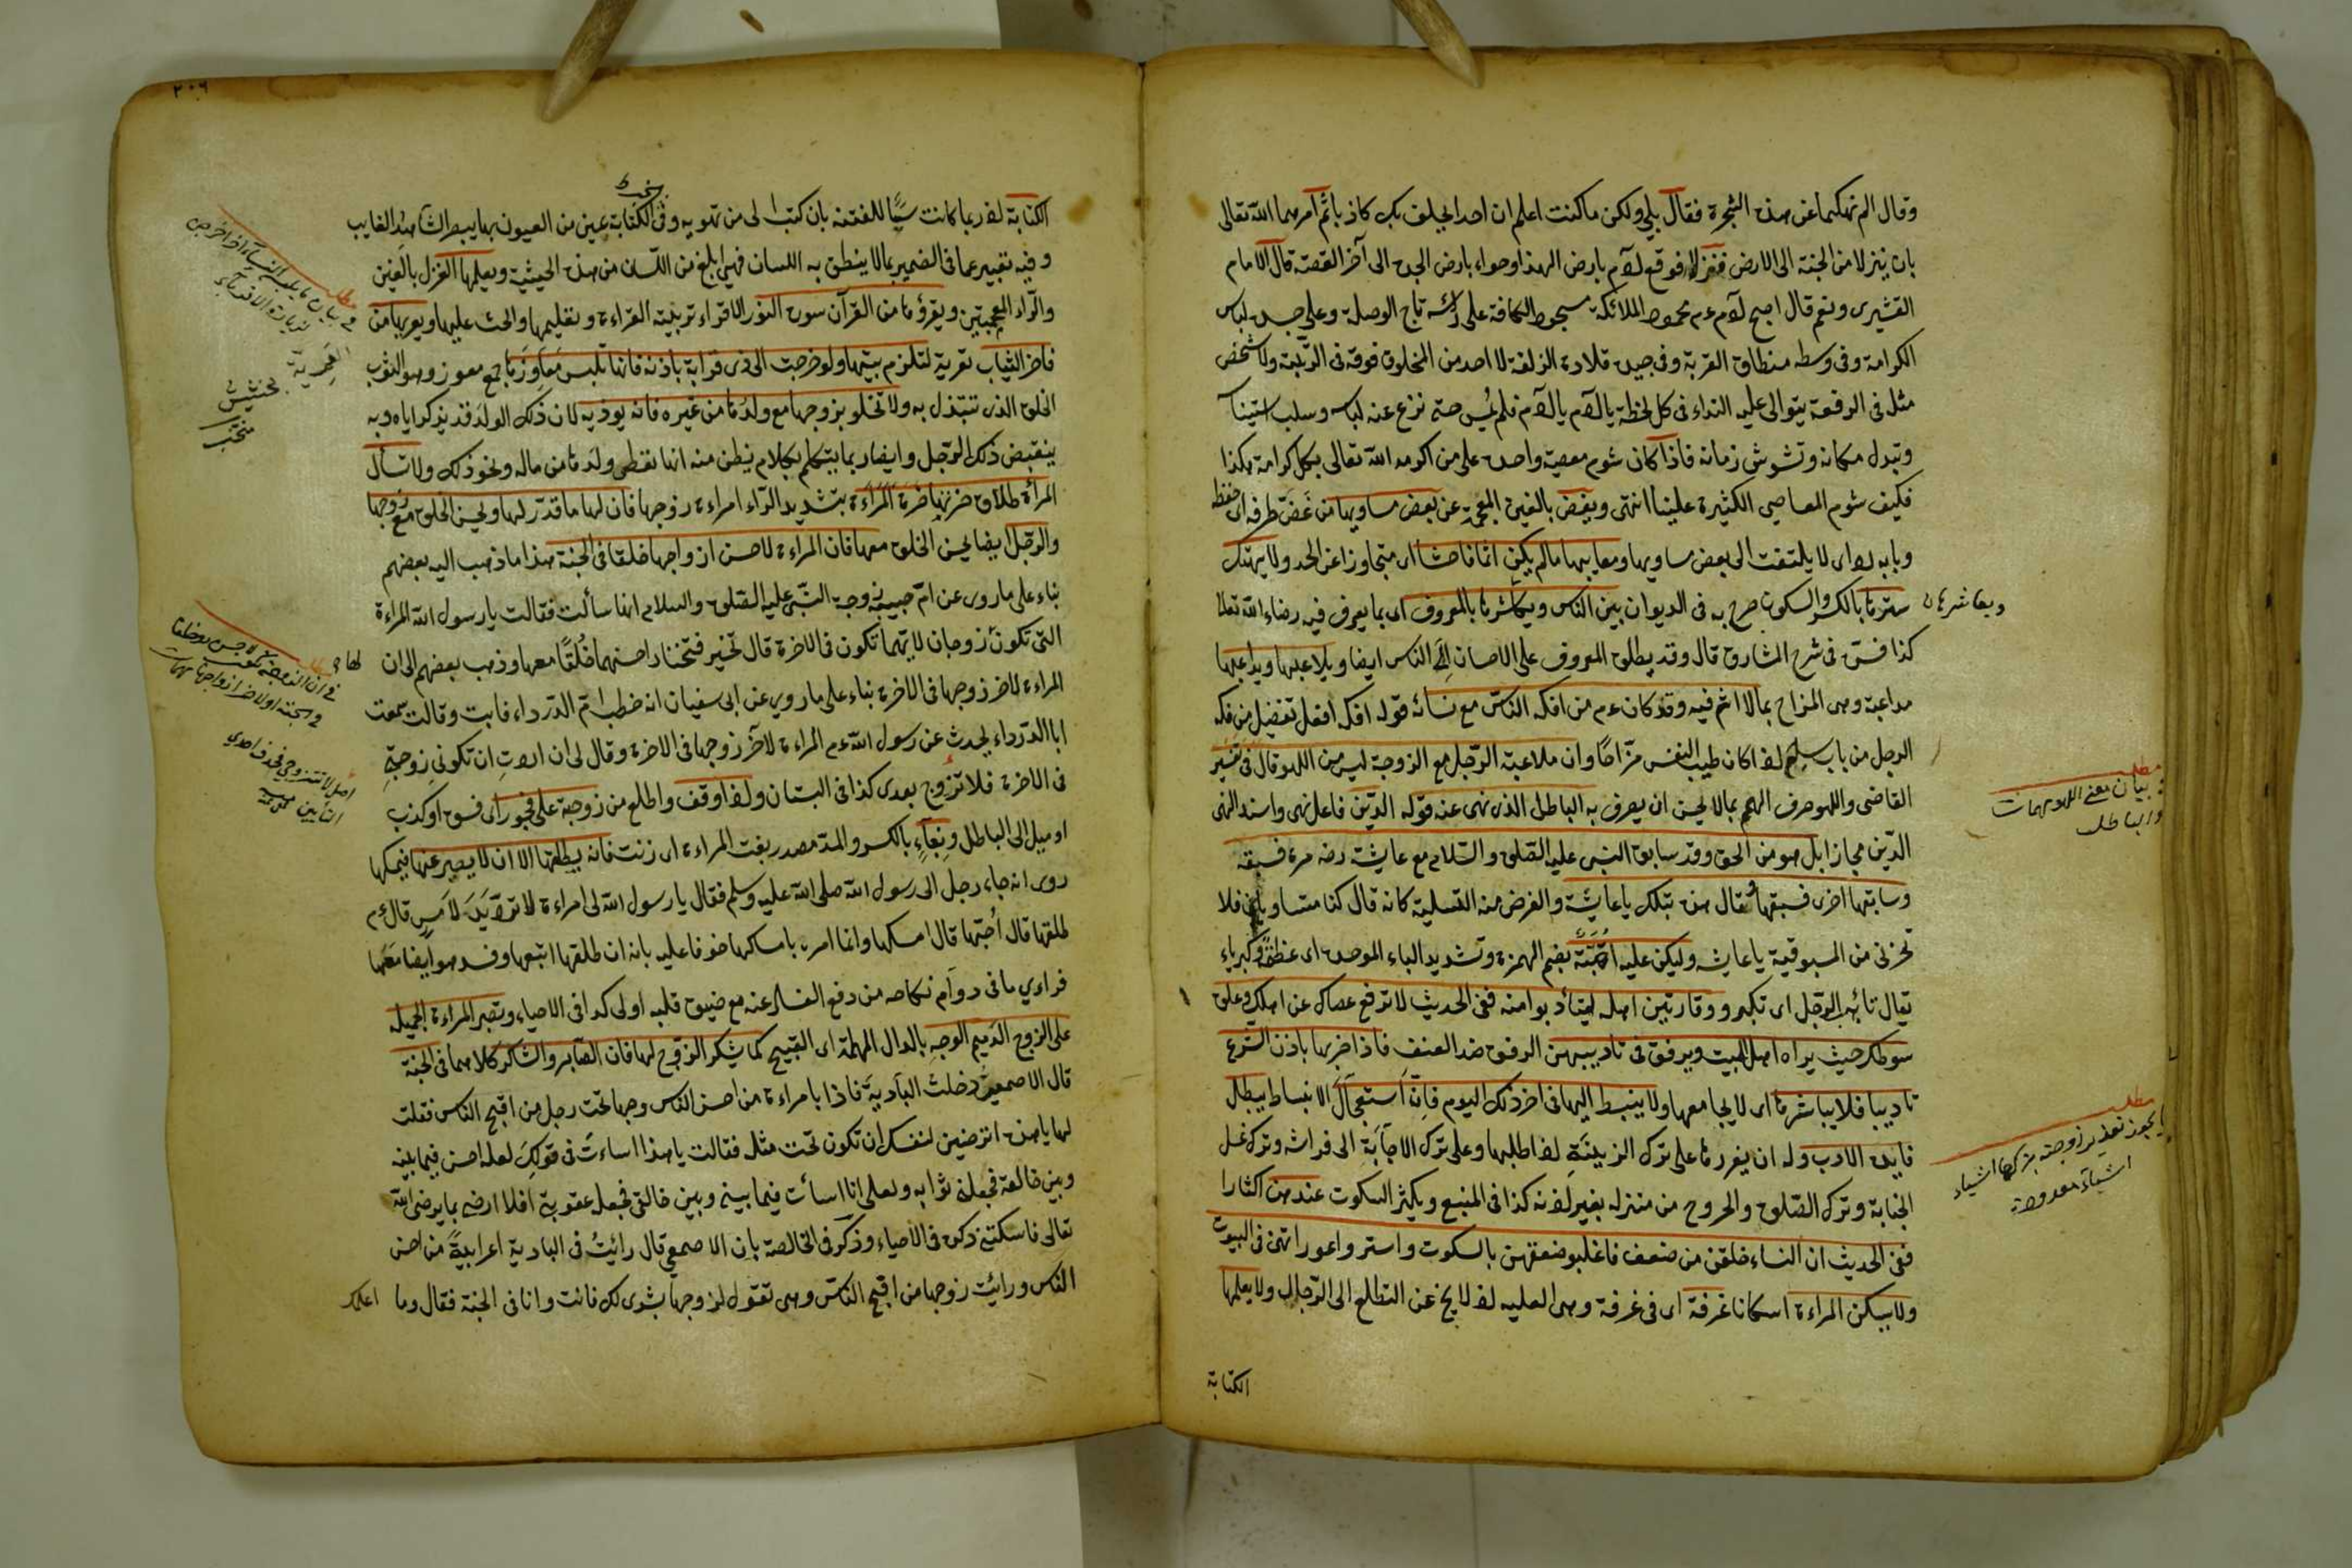 وقال الم انهكما عن هذه الشجرة فقال بلى ولكن ما كنت اعلم ان احدا يحلف بك كاذبا ثم امرهما الله تعالى
بان ينزلا من الجنة الى الارض فنزلا فوقع آدم بارض الهند وحواء بارض الجدة الى آخر القصة قال الامام
القشيرى ونعم قال اصبح آدم عم محمود الملائكة مسجود الكافة على رأسه تاج الوصلة وعلى جسده لباس
الكرامة وفى وسطه منطاق القربة وفى جيده قلادة الزلفة لا احد من المخلوق فوقه فى الرتبة ولا شخص
مثله فى الرفعة يتوالى عليه النداء فى كل لحظة يا آدم يا آدم فلم يمس حتى نزع عنه لباسه وسلب استيناسه
وتبدل مكانه وتشوش زمانه فاذا كان شوم معصية واحدة على من اكرمه الله تعالى بكل كرامة هكذا
فكيف شوم المعاصى الكثيرة علينا انتهى ويغض بالغين المعجمة عن بعض مساويها من غض طرفه اى خفظ
وبابه رد اى لا يلتفت الى بعض مساويها ومعايبها ما لم يكن اثما فاحشا اى متجاوزا عن الحد ولا يهتك
سترها بالكسر والسكون صرح به فى الديوان بين الناس ويعاشرها بالمعروف اى بما يعرف فيه رضاء الله تعالى
ومعاشرها
كذا فسر فى شرح المشارق قال وقد يطلق المعروف على الاحسان الى الناس ايضا ويلاعبها ويداعبها
مداعبة وهى المزاح بما لا اثم فيه وقد كان عم من افكه الناس مع نسائه قوله افكه افعل تفضيل من فكه
الرجل من باب سلم اذا كان طيب النفس مزاحا وان ملاعبة الرجل مع الزوجة ليس من اللهو قال فى تفسير
القاضى واللهو صرف الهم بما لا يحسن ان يصرف به الباطل الذى نهى عنه قوله الدين فاعل نهى واسند النهى
الدين مجازا بل هو من الحق وقد سابق النبى عليه الصلوة والسلام مع عايشة رضه مرة فسبقه
وسابقها اخرى فسبقها فقال هذه بتلك يا عايشة والغرض منه التسلية كانه قال كنا متساويين فلا
تحزنى من المسبوقية يا عايشة وليكن عليه ابهة بضم الهمزة وتشديد الباء الموحدة اى عظمة وكبرياء
يقال تأبه الرجل اى تكبر ووقار بين اهله ليتأدبوا منه ففى الحديث لا ترفع عصاك عن اهلك وعلق
سوطك حيث يراه اهل البيت ويرفق فى تاديبهن الرفق ضد العنف فاذا ضربها باذن الشرع
تاديبا فلا يباشرها اى لا يجامعها ولا ينبسط اليها فى آخر ذلك اليوم فان استعجال الانبساط يبطل
فايدة الادب وله ان يعزرها على ترك الزينة اذا طلبها وعلى ترك الاجابة الى فراشه وترك غسل
الجنابة وترك الصلوة والخروج من منزله بغير اذنه كذا فى المنبع ويكثر السكوت عندهن اكثارا
ففى الحديث ان النساء خلقن من ضعف فاغلبوا ضعفهن بالسكوت واستروا عوراتهن فى البيوت
ولا يسكن المراءة اسكانا غرفة اى فى غرفة وهى العليه اذ لا يخ عن التطلع الى الرجال ولا يعلمها
الكتابة
مطلب
فى بيان معنى اللهو
والباطل
مطلب
يجوز تعزير زوجته بتركها اشياء
اشياء معدودة
٢٠٦
الكتابة اذ ربما كانت سببا للفتنة بان كتبت الى من تهويه وفى الكتابة عين من العيون بها يبصر الشاهد الغايب
وفيه تعبير عما فى الضمير بما لا ينطق به اللسان فهى ابلغ من اللسان من هذه الحيثية ويعلمها الغزل بالغين
والزاء المعجمتين ويقرؤها من القرآن سورة النور الاقراء تربية القراءة وتعليمها والحث عليها ويعريها من
فاخر الثياب تعرية لتلزم بيتها ولو خرجت الى ذى قرابة باذنه فانها تلبس معاوزها جمع معوز وهو الثوب
الخلق الذى تتبذل به ولا تخلو بزوجها مع ولدها من غيره فانه يوذيه لان ذلك الولد قد يذكر اياه وبه
ينقبض ذلك الرجل وايضا ربما يتكلم بكلام يظن منه انها تعطى ولدها من ماله ونحو ذلك ولا تسأل
المرأة طلاق ضرتها ضرة المراءة بتشديد الراء امراءة زوجها فان لها ما قدر لها ويحسن الخلق مع زوجها
والرجل ايضا يحسن الخلق معها فان المراءة لاحسن ازواجها خلقا فى الجنة هذا ما ذهب اليه بعضهم
بناء على ما روى عن ام حبيبة زوجة النبى عليه الصلوة والسلام انها سألت فقالت يا رسول الله المراءة
التى تكون زوجان لايهما تكون فى الاخرة قال تخير فتختار احسنهما خلقا معها وذهب بعضهم الى ان
لها
المراءة لاخر زوجها فى الاخرة بناء على ما روى عن ابى سفيان انه خطب ام الدرداء فابت وقالت سمعت
ابا الدرداء يحدث عن رسول الله عم المراءة لآخر زوجها فى الاخرة وقال لى ان اردت ان تكونى زوجتى
فى الاخرة فلا تزوج بعدى كذا فى البستان واذا وقف واطلع من زوجة على فجور اى فسق او كذب
او ميل الى الباطل وبغاء بالكسر والمد مصدر بغت المراءة اى زنت فانه يطلقها الا ان لا يصبر عنها فيمسكها
روى انه جاء رجل الى رسول الله صلى الله عليه وسلم فقال يا رسول الله لى امراءة لا ترد يد لامس قال عم
طلقها قال احبها قال امسكها وانما امره بامساكها خوفا عليه بانه ان طلقها اتبعها وفسد هو ايضا معها
فراى ما فى دوام نكاحه من دفع الفساد عنه مع ضيق قلبه اولى كذا فى الاحياء وتصبر المراءة الجميلة
على الزوج الدميم الوجه بالدال المهملة اى القبيح كما يشكر الزوج لها فان الصابر والشاكر كلاهما فى الجنة
قال الاصمعى دخلت البادية فاذا بامراءة من احسن الناس وجها تحت رجل من اقبح الناس فقلت
لها يا هذه اترضين لنفسك ان تكون تحت مثله فقالت يا هذا اساءت فى قولك لعله احسن فيما بينه
وبين خالقه فجعلنى ثوابه ولعلى انا اسأت فيما بينى وبين خالقى فجعله عقوبتى افلا ارضى بما يرضى الله
تعالى فاسكتنى ذكره فى الاحياء وذكر فى الخالصة بان الاصمعى قال رائيت فى البادية اعرابية من احسن
الناس ورائيت زوجها من اقبح الناس وهى تقول لزوجها بشرى لك فانت وانا فى الجنة فقال وما
اعلمك
مطلب